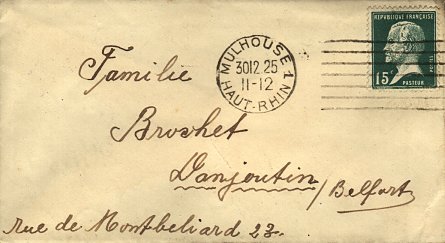 RÉPUBLIQUE FRANÇAISE
15c
POSTES
PASTEUR
MULHOUSE 1
30 12 25
11-12
HAUT-RHIN
Familie
Brochet
Danjoutin / Belfort
rue de Montbeliard 23.